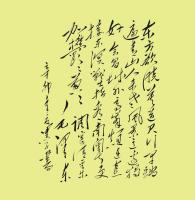 东方欲晓莫道君行早踏
遍青山人未老风景这边独
好会昌城外高峰颠连直
接东溟战士指看南粤更
加郁郁葱葱
辛卯
书